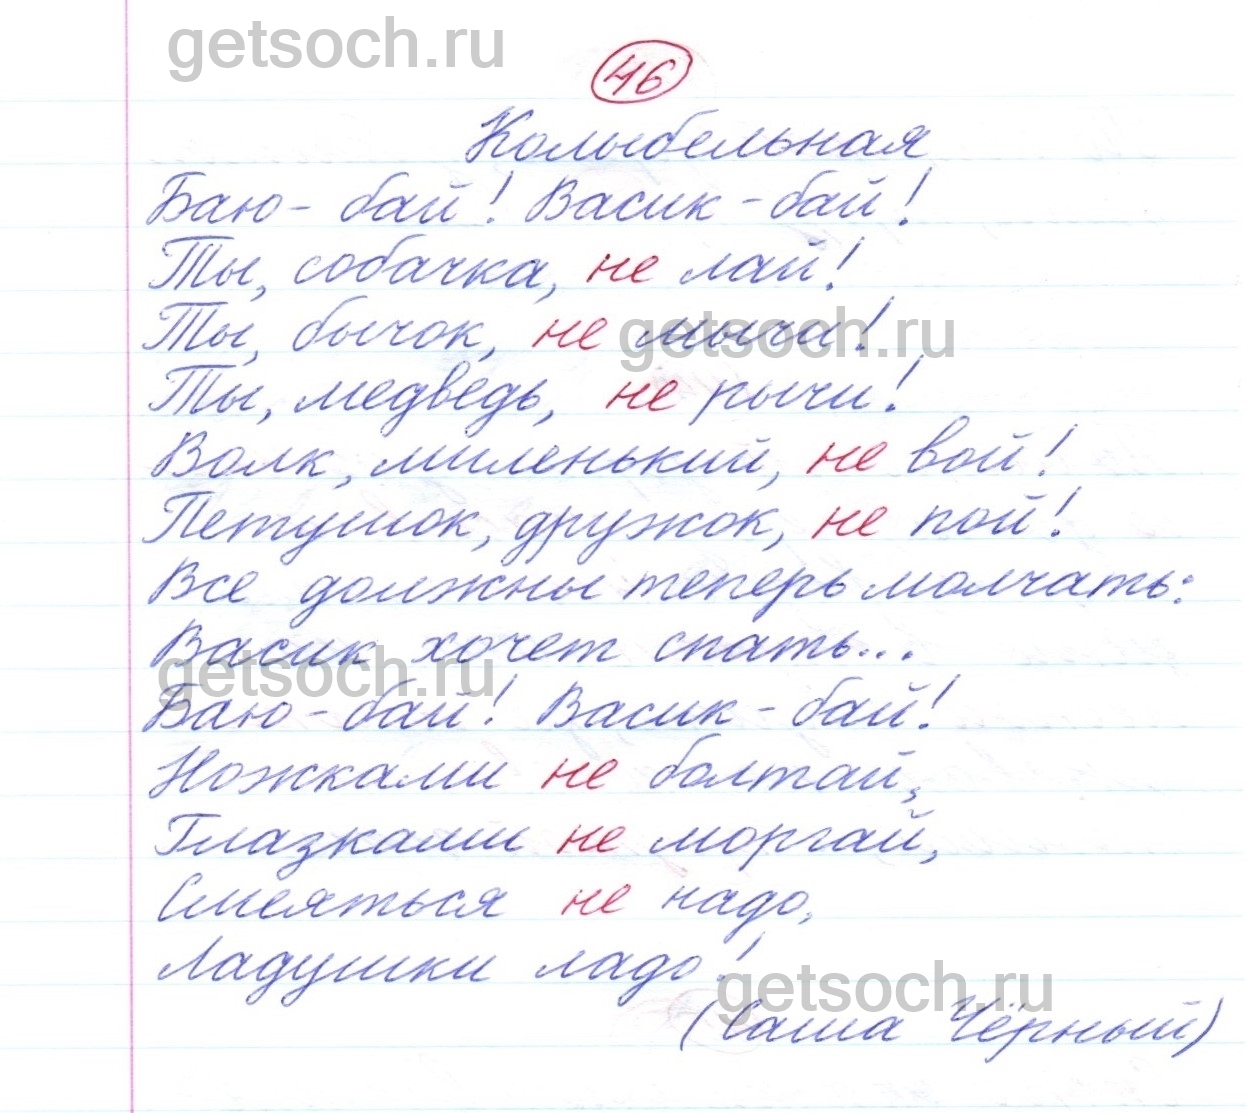 getsoch.ru
46
Колыбельная
Баю-бай! Васик-бай!
Ты, собачка, не лай!
Ты, бычок, не мычи!
getsoch.ru
Ты, медведь, не рычи!
Волк, миленький, не вой!
Петушок, дружок, не пой!
Все должны теперь молчать:
Васик хочет спать...
getsoch.ru
Баю-бай! Васик-бай!
Ножками не болтай,
Глазками не моргай,
Смеяться не надо,
Ладушки ладо!
getsoch.ru
(Саша Чёрный)